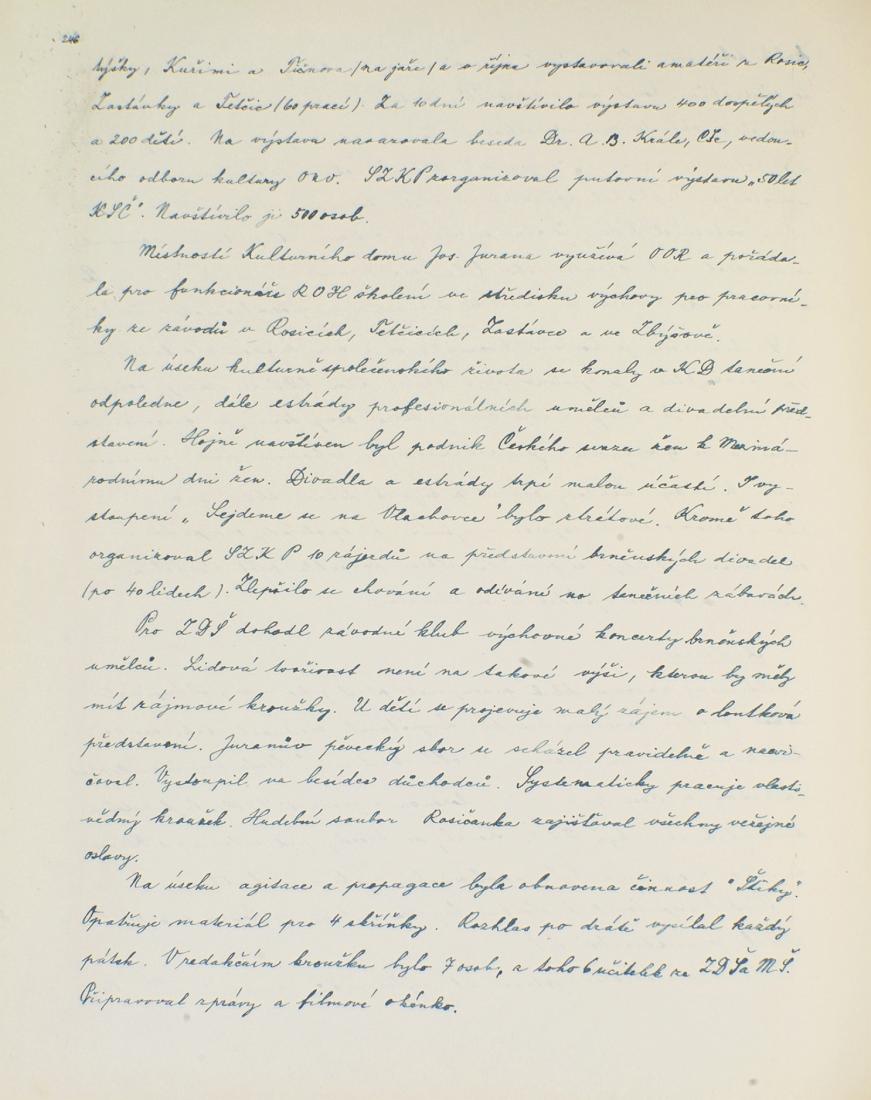 246
týšky, Kuřimi a Tišnova /na jaře/ a v říjnu vystavovali amatéři z Rosic,
Zastávky a Tetčic /60 prací/. Za 10 dní navštívilo výstavu 400 dospělých
a 200 dětí. Na výstavu navazovala beseda Dr. A. B. Krále, CSc, vedou-
cího odboru kultury ONV. SZKP zorganizoval putovní výstavu „50 let
KSČ". Navštívilo ji 500 osob.
Místností Kulturního domu Jos. Jurana využívá OOR a pořáda-
la pro funkcionáře ROH školení ve středisku výchovy pro pracovní-
ky ze závodů v Rosicích, Tetčicích, Zastávce a ve Zbýšově.
Na úseku kulturně společenského života se konaly v KD taneční
odpoledne, dále estrády profesionálních umělců a divadelní před-
stavení. Hojně navštíven byl podnik Českého svazu žen k Meziná-
rodnímu dni žen. Divadla a estrády trpí malou účastí. I vy-
stoupení „Sejdeme se na Vlachovce" bylo ztrátové. Kromě toho
organizoval SZKP 10 zájezdů na představení brněnských divadel
(po 40 lidech). Zlepšilo se chování a odívání na tanečních zábavách.
Pro ZDŠ dohodl závodní klub výchovné koncerty brněnských
umělců. Lidová tvořivost není na takové výši, kterou by měly
mít zájmové kroužky. U dětí se projevuje malý zájem o loutková
představení. Juranův pěvecký sbor se scházel pravidelně a nacvi-
čoval. Vystoupil na besídce důchodců. Systematicky pracuje vlasti-
vědný kroužek. Hudební soubor Rosičanka zajišťoval všechny veřejné
oslavy.
Na úseku agitace a propagace byla obnovena činnost "Štiky".
Opatřuje materiál pro 4 skříňky. Rozhlas po drátě vysílal každý
pátek. V redakčním kroužku bylo 7 osob, z toho 6 učitelek ze ZDŠ a MŠ.
Připravoval zprávy a filmové okénko.